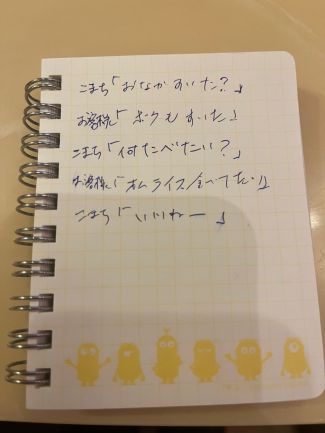 こまち「おなかすいた?」
お客様「ボクもすいた」
こまち「何たべたい?」
お客様「オムライス食べてた!」
こまち「いいねー」